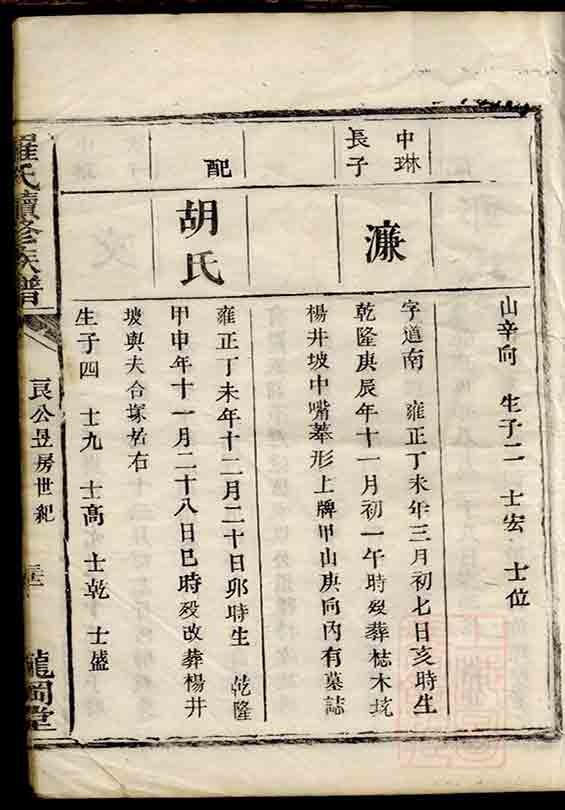 山辛向 生子二 士宏 士位
中琳長子
濂
字道南 雍正丁未年三月初七日亥時生
乾隆庚辰年十一月初一午時歿葬梽木坑
楊井坡中嘴墓形上牌甲山庚向內有墓誌
配
胡氏
雍正丁未年十二月二十日卯時生 乾隆
甲申年十一月二十八日巳時歿改葬楊井
坡與夫合塚居右
生子四 士九 士高 士乾 士盛
羅氏續修族譜
良公昱房世紀
龍岡堂